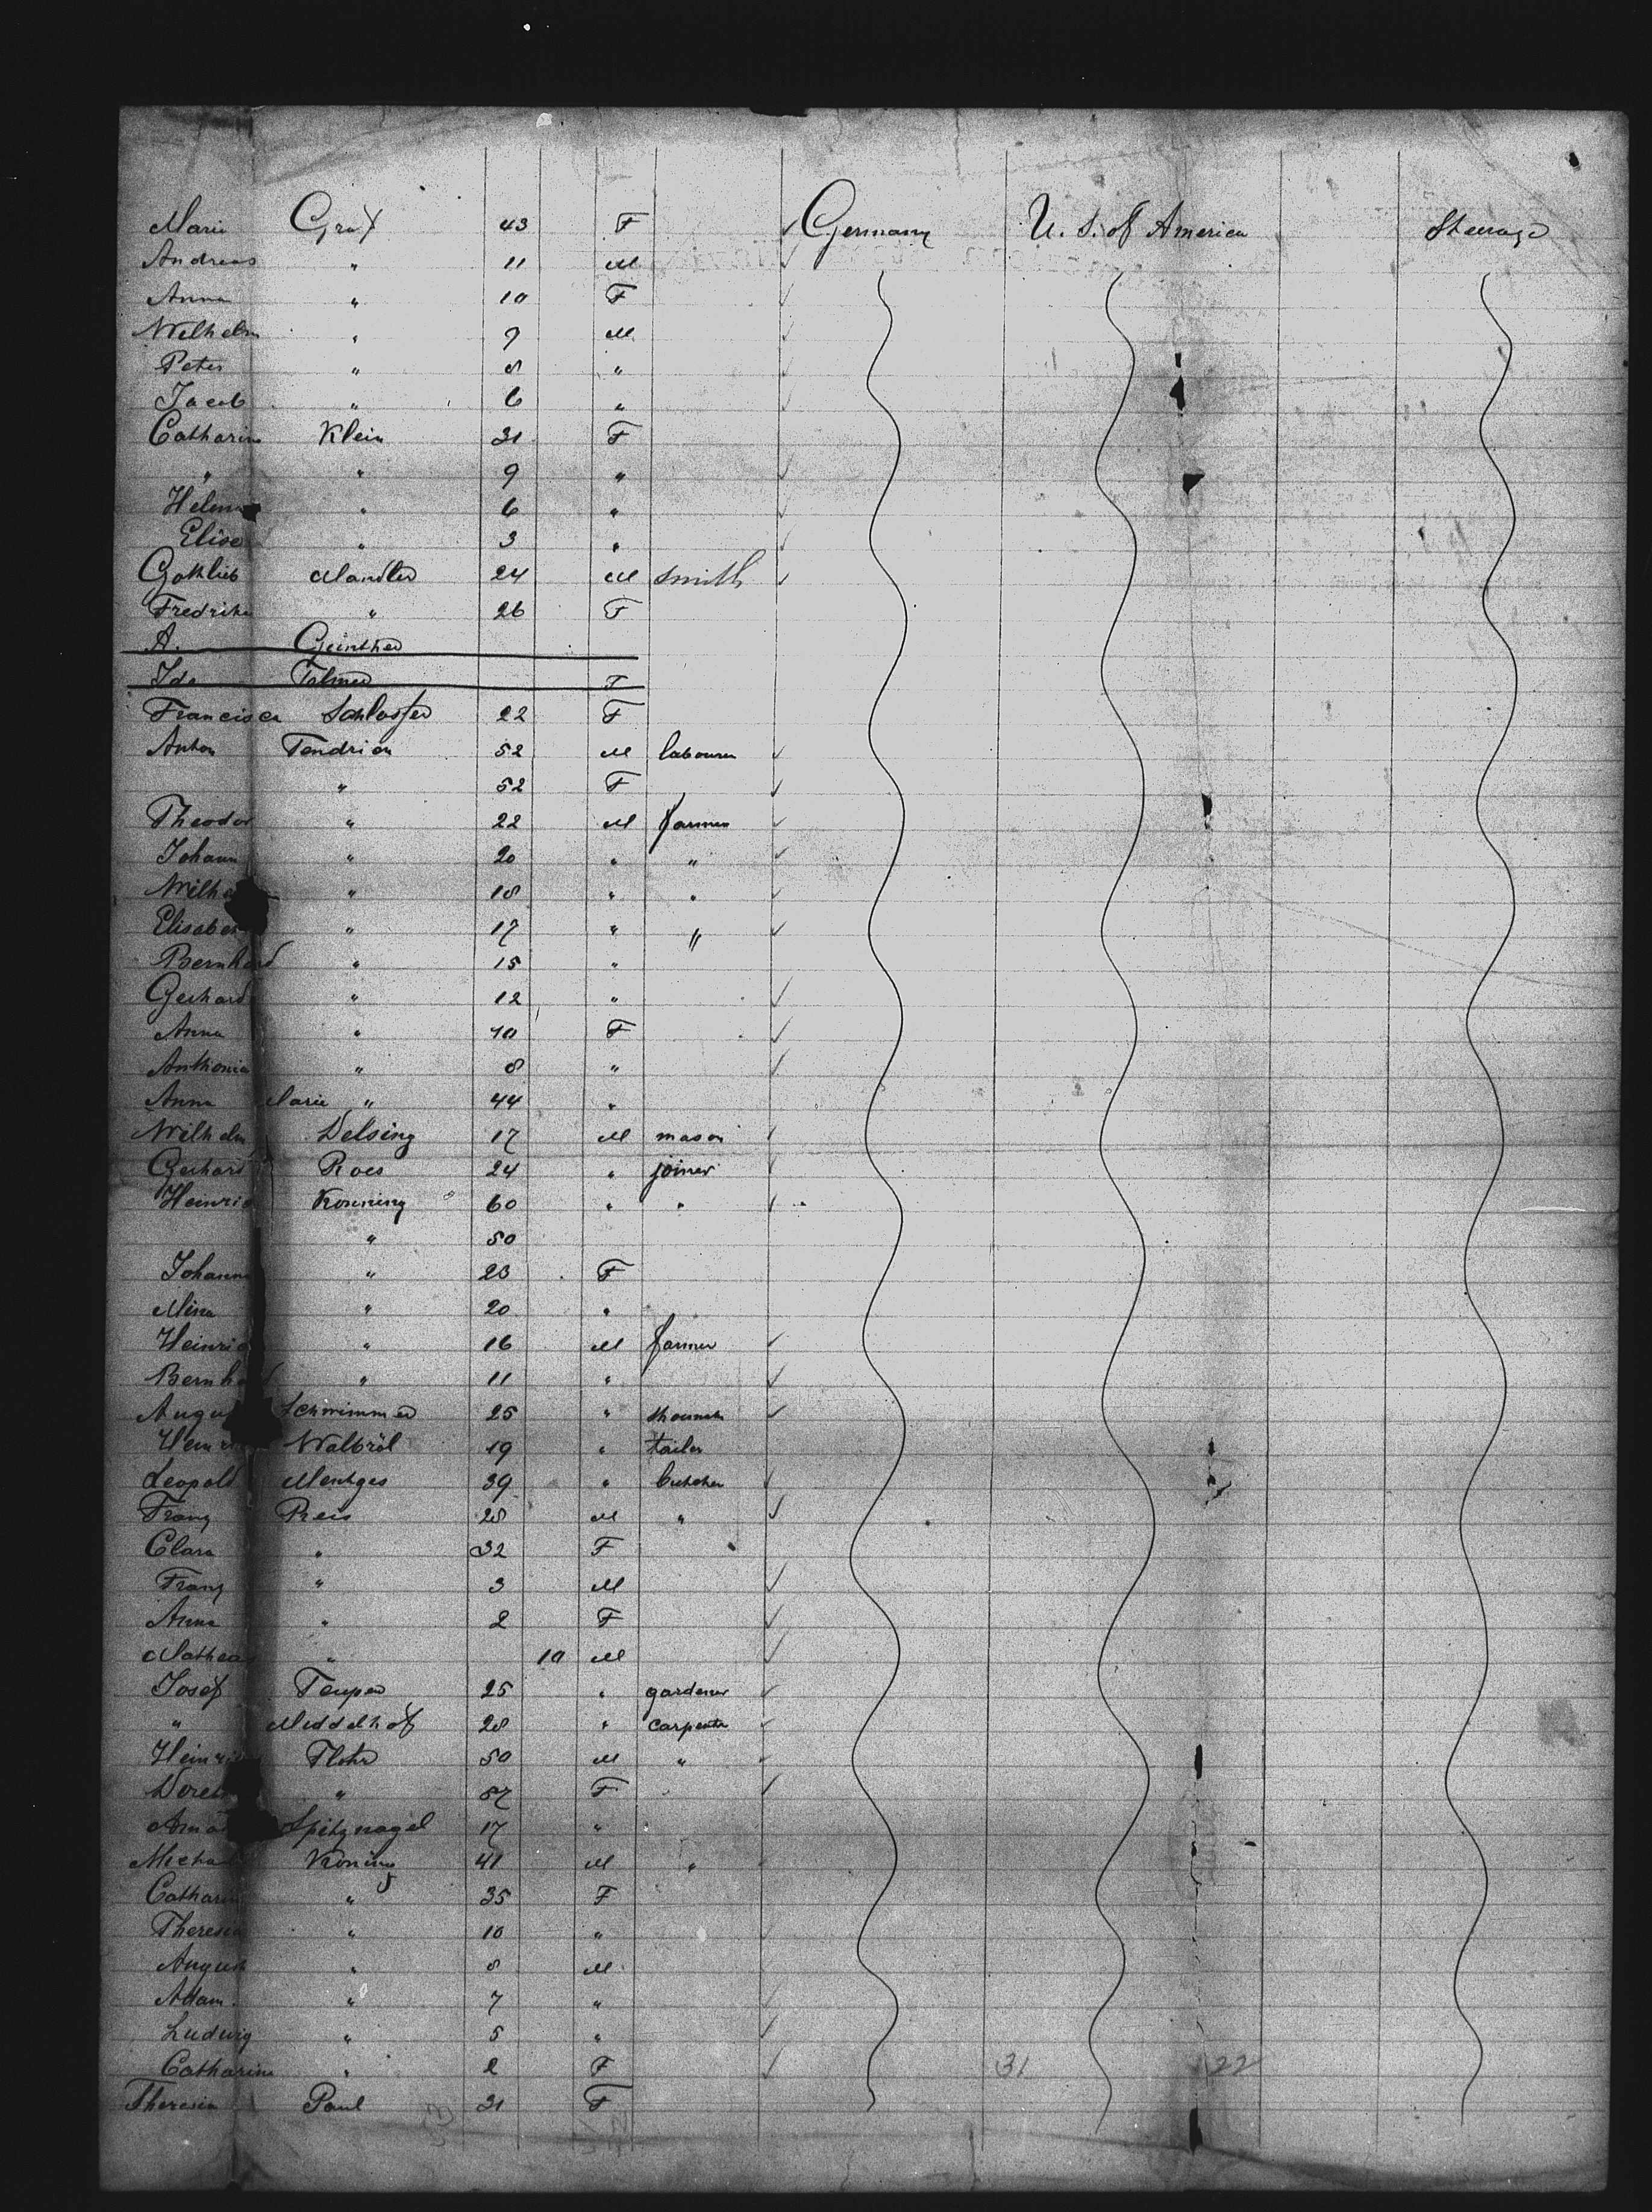 Marie Graf 43 F Germany U. S. of America Steerage
Andreas " 11 M
Anna " 10 F
Wilhelm " 9 M
Peter " 8 "
Jacob " 6 "
Catharine Klein 31 F
" " 9 "
Helene " 6 "
Elise " 3 "
Gottlieb Mandler 24 M smith
Fredrike " 26 F
A. Geinther
Ida Talmer F
Francisca Schlosser 22 F
Anton Tendrion 52 M labourer
" 52 F
Theodor " 22 M farmer
Johann " 20 " "
Wilhe " 18 " "
Elisabe " 17 " "
Bernhard " 15 "
Gerhard " 12 "
Anna " 10 F
Anthonia " 8 "
Anna Marie " 44 "
Wilhelm Delsing 17 M mason
Gerhard Roes 24 " joiner
Heinric Konning 60 " "
" 50
Johann " 23 F
Mina " 20 "
Heinric " 16 M farmer
Bernhard " 11 "
Augus Schwimmer 25 " shoemak
Heinr Walbröl 19 " tailer
Leopold Mentges 39 " butcher
Franz Preis 28 M "
Clara " 32 F
Franz " 3 M
Anna " 2 F
Matheas " 10 M
Josef Teuper 25 " gardener
" Meddelhof 28 " carpenter
Heinri Flohr 50 M "
Doreth " 57 F
Spitznagel 17 "
Micha Koning 41 M "
Catharin " 35 F
Theresia " 10 "
August " 8 M
Adam " 7 "
Ludwig " 5 "
Catharine " 2 F 31 22
Theresia Paul 21 F